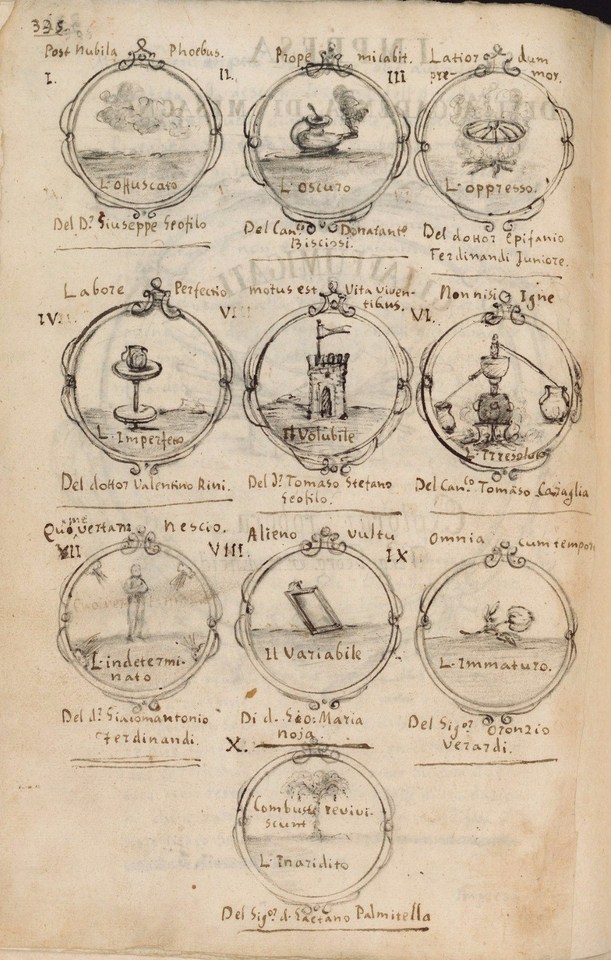 335.
Post Nubila Phoebus.
I.
L'offuscato
Del D.r Giuseppe Geofilo
Prope micabit.
II.
L'oscuro
Del Can.co Donatante
Bisciosi.
Latior dum
pre- mor.
III
L'oppresso.
Del dottor Epifanio
Ferdinandi Juniore.
Labore Perfectio
IV.
L'Imperfetto
Del dottor Valentino Rini.
motus est Vita Viven-
tibus.
V
Il Volubile
Del D.r Tomaso Stefano
Geofilo.
Non nisi Igne
VI.
L'Irresoluto
Del Can.co Tomaso Cataglia
Quo me vertam Nescio.
VII
L'indetermi-
nato
Del d.r Giacomantonio
Ferdinandi.
Alieno vultu
VIII.
Il Variabile
Di d. Gio: Maria
Noja.
Omnia cum tempore
IX
L'Immaturo.
Del Sig.or Oronzio
Verardi.
X.
Combusta revivi-
scunt
L'Inaridito
Del Sig.or d. Gaetano Palmitella